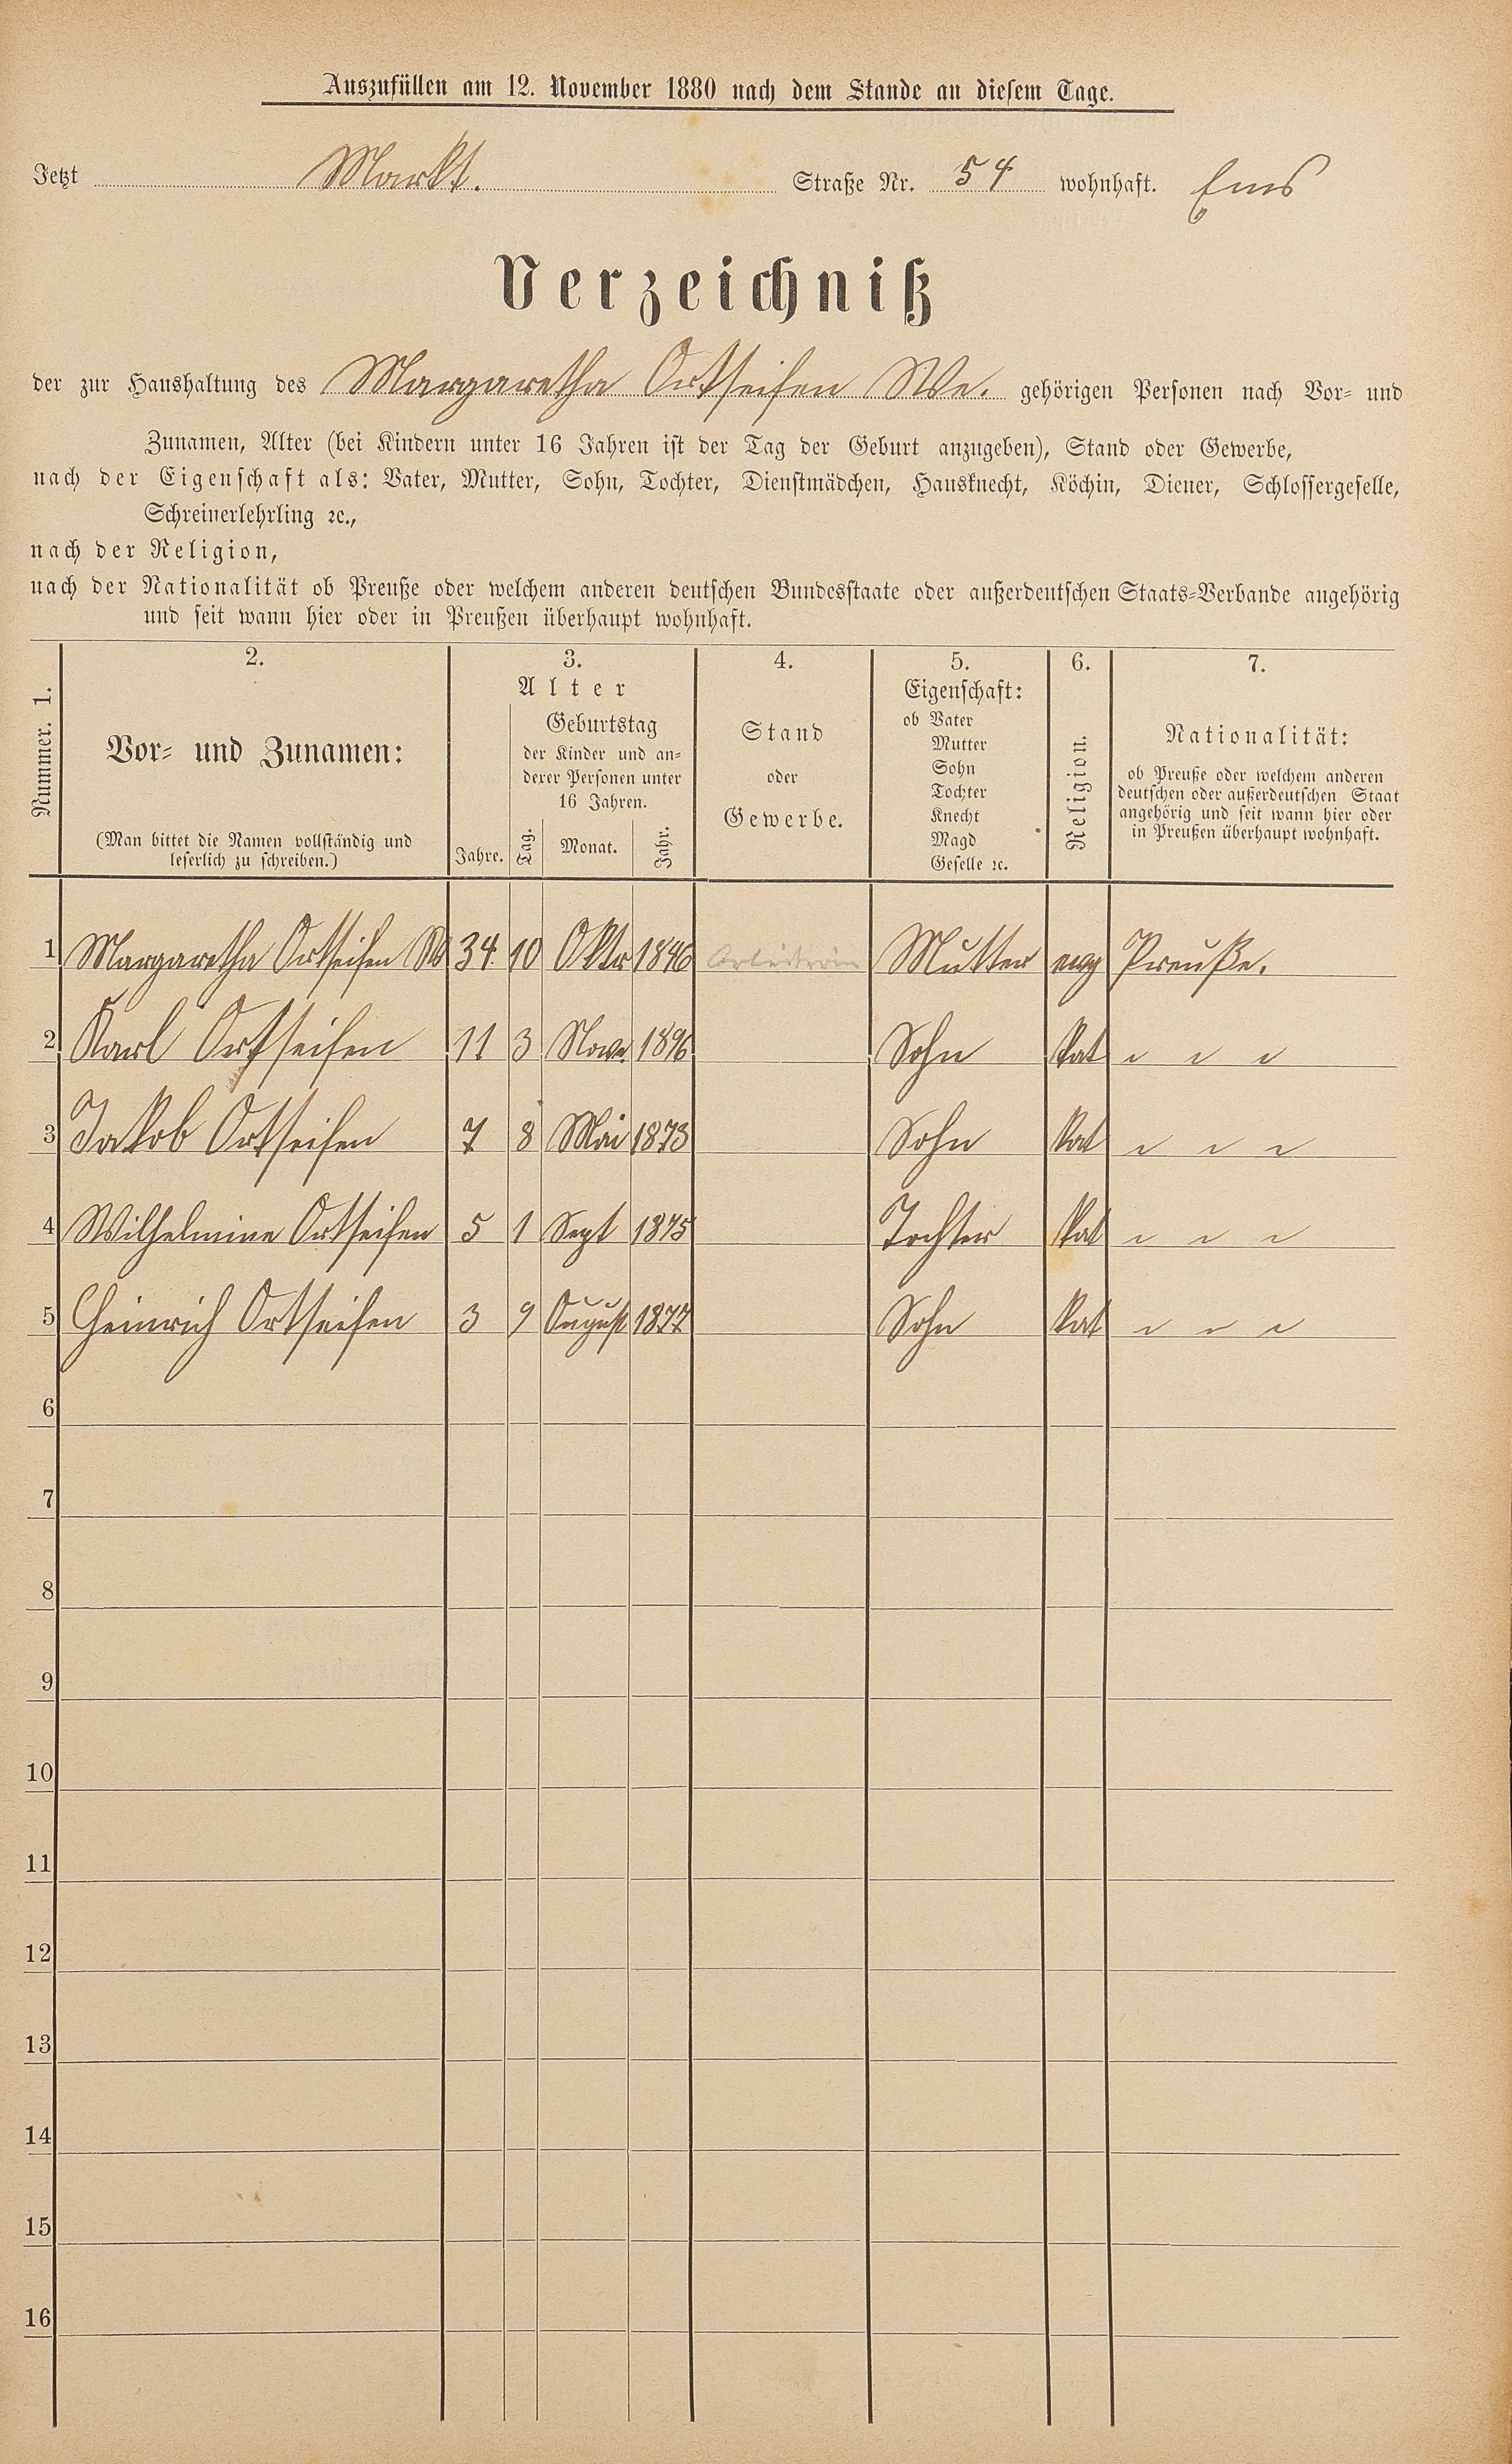 Auszufüllen am 12. November 1880 nach dem Stande an diesem Tage.
Jetzt Markt. Straße Nr. 54 wohnhaft. Ems
Verzeichniß
der zur Haushaltung des Margaretha Ortseifen We. gehörigen Personen nach Vor- und
Zunamen, Alter (bei Kindern unter 16 Jahren ist der Tag der Geburt anzugeben), Stand oder Gewerbe,
nach der Eigenschaft als: Vater, Mutter, Sohn, Tochter, Dienstmädchen, Hausknecht, Köchin, Diener, Schlossergeselle,
Schreinerlehrling ꝛc.,
nach der Religion,
nach der Nationalität ob Preuße oder welchem anderen deutschen Bundesstaate oder außerdeutschen Staats-Verbande angehörig
und seit wann hier oder in Preußen überhaupt wohnhaft.
Nummer. 1.
2.
Vor- und Zunamen:
(Man bittet die Namen vollständig und
leserlich zu schreiben.)
3.
Alter
Jahre.
Geburtstag
der Kinder und an-
derer Personen unter
16 Jahren.
Tag. Monat. Jahr.
4.
Stand
oder
Gewerbe.
5.
Eigenschaft:
ob Vater
Mutter
Sohn
Tochter
Knecht
Magd
Geselle ꝛc.
6.
Religion.
7.
Nationalität:
ob Preuße oder welchem anderen
deutschen oder außerdeutschen Staat
angehörig und seit wann hier oder
in Preußen überhaupt wohnhaft.
1 Margaretha Ortseifen We 34 10 Oktr 1846 Arbeiterin Mutter evg Preuße.
2 Karl Ortseifen 11 3 Novr. Sohn Kat " " "
3 Jakob Ortseifen 7 8 Mai 1873 Sohn Kat " " "
4 Wilhelmine Ortseifen 5 1 Sept 1875 Tochter Kat " " "
5 Heinrich Ortseifen 3 9 August 1877 Sohn Kat " " "
6
7
8
9
10
11
12
13
14
15
16